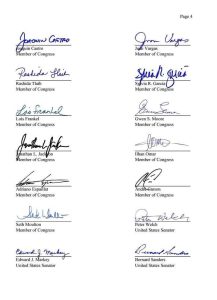 Page 4
Joaquin Castro
Juan Vargas
Joaquin Castro
Member of Congress
Juan Vargas
Member of Congress
Rashida Tlaib
Rashida Tlaib
Member of Congress
Sylvia R. Garcia
Member of Congress
Lois Frankel
Lois Frankel
Member of Congress
Gwen S. Moore
Member of Congress
Jonathan L. Jackson
Member of Congress
Ilhan Omar
Member of Congress
Adriano Espaillat
Member of Congress
André Carson
Member of Congress
Seth Moulton
Member of Congress
Peter Welch
Peter Welch
United States Senator
Edward J. Markey
Edward J. Markey
United States Senator
Bernard Sanders
Bernard Sanders
United States Senator